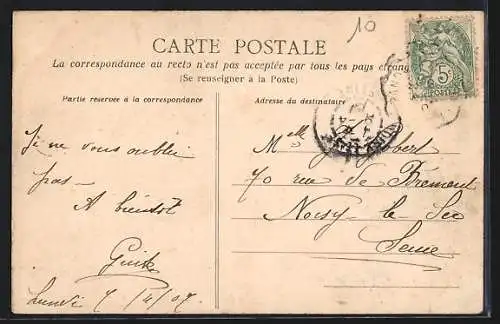 10
CARTE POSTALE
La correspondance au recto n'est pas acceptée par tous les pays étrang
(Se renseigner à la Poste)
Partie réservée à la correspondance
Adresse du destinataire
5c
POSTES
Je ne vous oublie
pas —
A bientôt
Lundi 7/4/07.
Melle Jobert
70 rue de Brément
Noisy-le-Sec
Seine